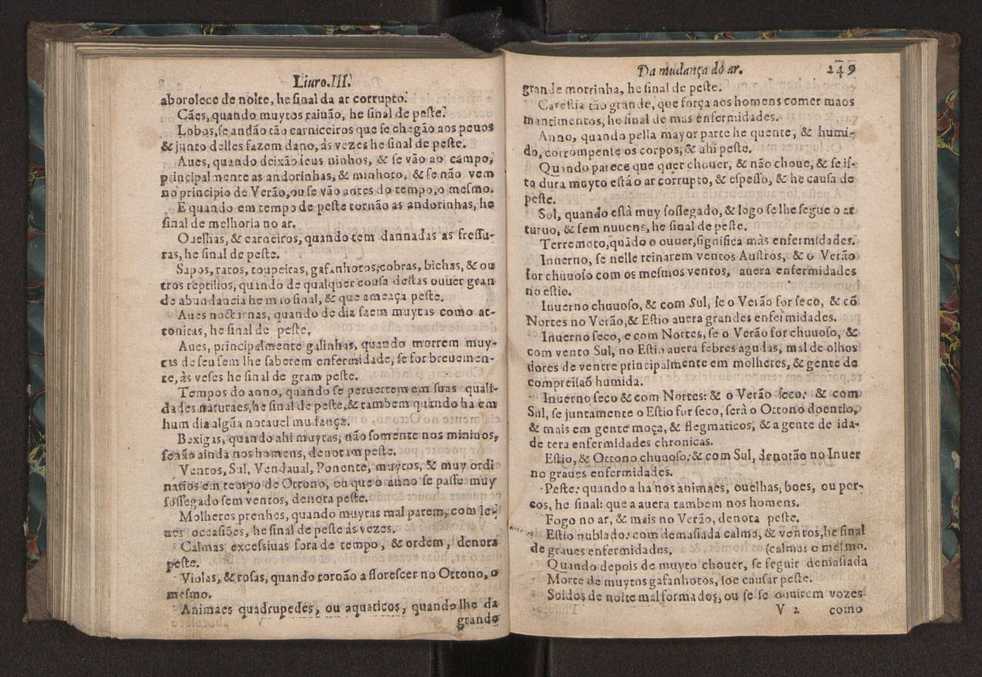 Liuro.III.
aborolece de noite, he sinal da ar corrupto.
Cães, quando muytos raiuão, he sinal de peste.
Lobos, se andão tão carniceiros que se chegão aos pouos
& junto delles fazem dano, ás vezes he sinal de peste.
Aues, quando deixão seus ninhos, & se vão ao campo,
principalmente as andorinhas, & minhoto, & se não vem
no principio de Verão, ou se vão antes do tempo, o mesmo.
E quando em tempo de peste tornão as andorinhas, he
sinal de melhoria no ar.
Ouelhas, & carneiros, quando tem dannadas as fressu-
ras, he sinal de peste.
Sapos, ratos, toupeiras, gafanhotos, cobras, bichas, & ou
tros reptilios, quando de qualquer cousa destas ouuer gran
de abundancia he mao sinal, & que ameaça peste.
Aues nocturnas, quando de dia saem muytas como at-
tonitas, he sinal de peste.
Aues, principalmente galinhas, quando morrem muy-
tas de seu sem lhe saberem enfermidade, se for breuemen-
te, às veses he sinal de gram peste.
Tempos do anno, quando se peruertem em suas quali-
dades naturaes, he sinal de peste, & tambem quando ha em
hum dia algũa notauel mudança.
Bexigas, quando ahi muytas, não somente nos mininos,
senão ainda nos homens, denotam peste.
Ventos, Sul, Vendaual, Ponente, muytos, & muy ordi
narios em tempo de Ottono, ou que o anno se passe muy
sossegado sem ventos, denota peste.
Molheres prenhes, quando muytas mal parem, com le-
ues occasiões, he sinal de peste ás vezes.
Calmas excessiuas fora de tempo, & ordem, denota
peste.
Violas, & rosas, quando tornão a florescer no Ottono, o
mesmo.
Animaes quadrupedes, ou aquaticos, quando lhe da
grande
Da mudança do ar. 249
grande morrinha, he sinal de peste.
Carestia tão grande, que força aos homens comer maos
mantimentos, he sinal de mas enfermidades.
Anno, quando pella mayor parte he quente, & humi-
do, corrompente os corpos, & ahi peste.
Quando parece que quer chouer, & não choue, & se is-
to dura muyto está o ar corrupto, & espesso, & he causa de
peste.
Sol, quando està muy sossegado, & logo se lhe segue o ar
turuo, & sem nuuens, he sinal de peste.
Terremoto, quãdo o ouuer, significa màs enfermidades.
Inuerno, se nelle reinarem ventos Austros, & o Verão
for chuuoso com os mesmos ventos, auera enfermidades
no estio.
Inuerno chuuoso, & com Sul, se o Verão for seco, & cõ
Nortes no Verão, & Estio auera grandes enfermidades.
Inuerno seco, e com Nortes, se o Verão for chuuoso, &
com vento Sul, no Estio auera febres agudas, mal de olhos
dores de ventre principalmente em molheres, & gente de
compreisaõ humida.
Inuerno seco & com Nortes: & o Verão seco: & com
Sul, se juntamente o Estio for seco, serà o Ottono doentio,
& mais em gente moça, & flegmaticos, & a gente de ida-
de tera enfermidades chronicas.
Estio, & Ottono chuuoso: & com Sul, denotão no Inuer
no graues enfermidades.
Peste: quando a ha nos animaes, ouelhas, boes, ou por-
cos, he sinal: que a auera tambem nos homens.
Fogo no ar, & mais no Verão, denota peste.
Estio nublado: com demasiada calma, & ventos, he sinal
de graues enfermidades, (calmas o mesmo.
Quando depois de muyto chouer, se seguir demasiada
Morte de muytos gafanhotos, soe causar peste.
Soidos de noite mal formados, ou se se ouuirem vozes
V 2 como